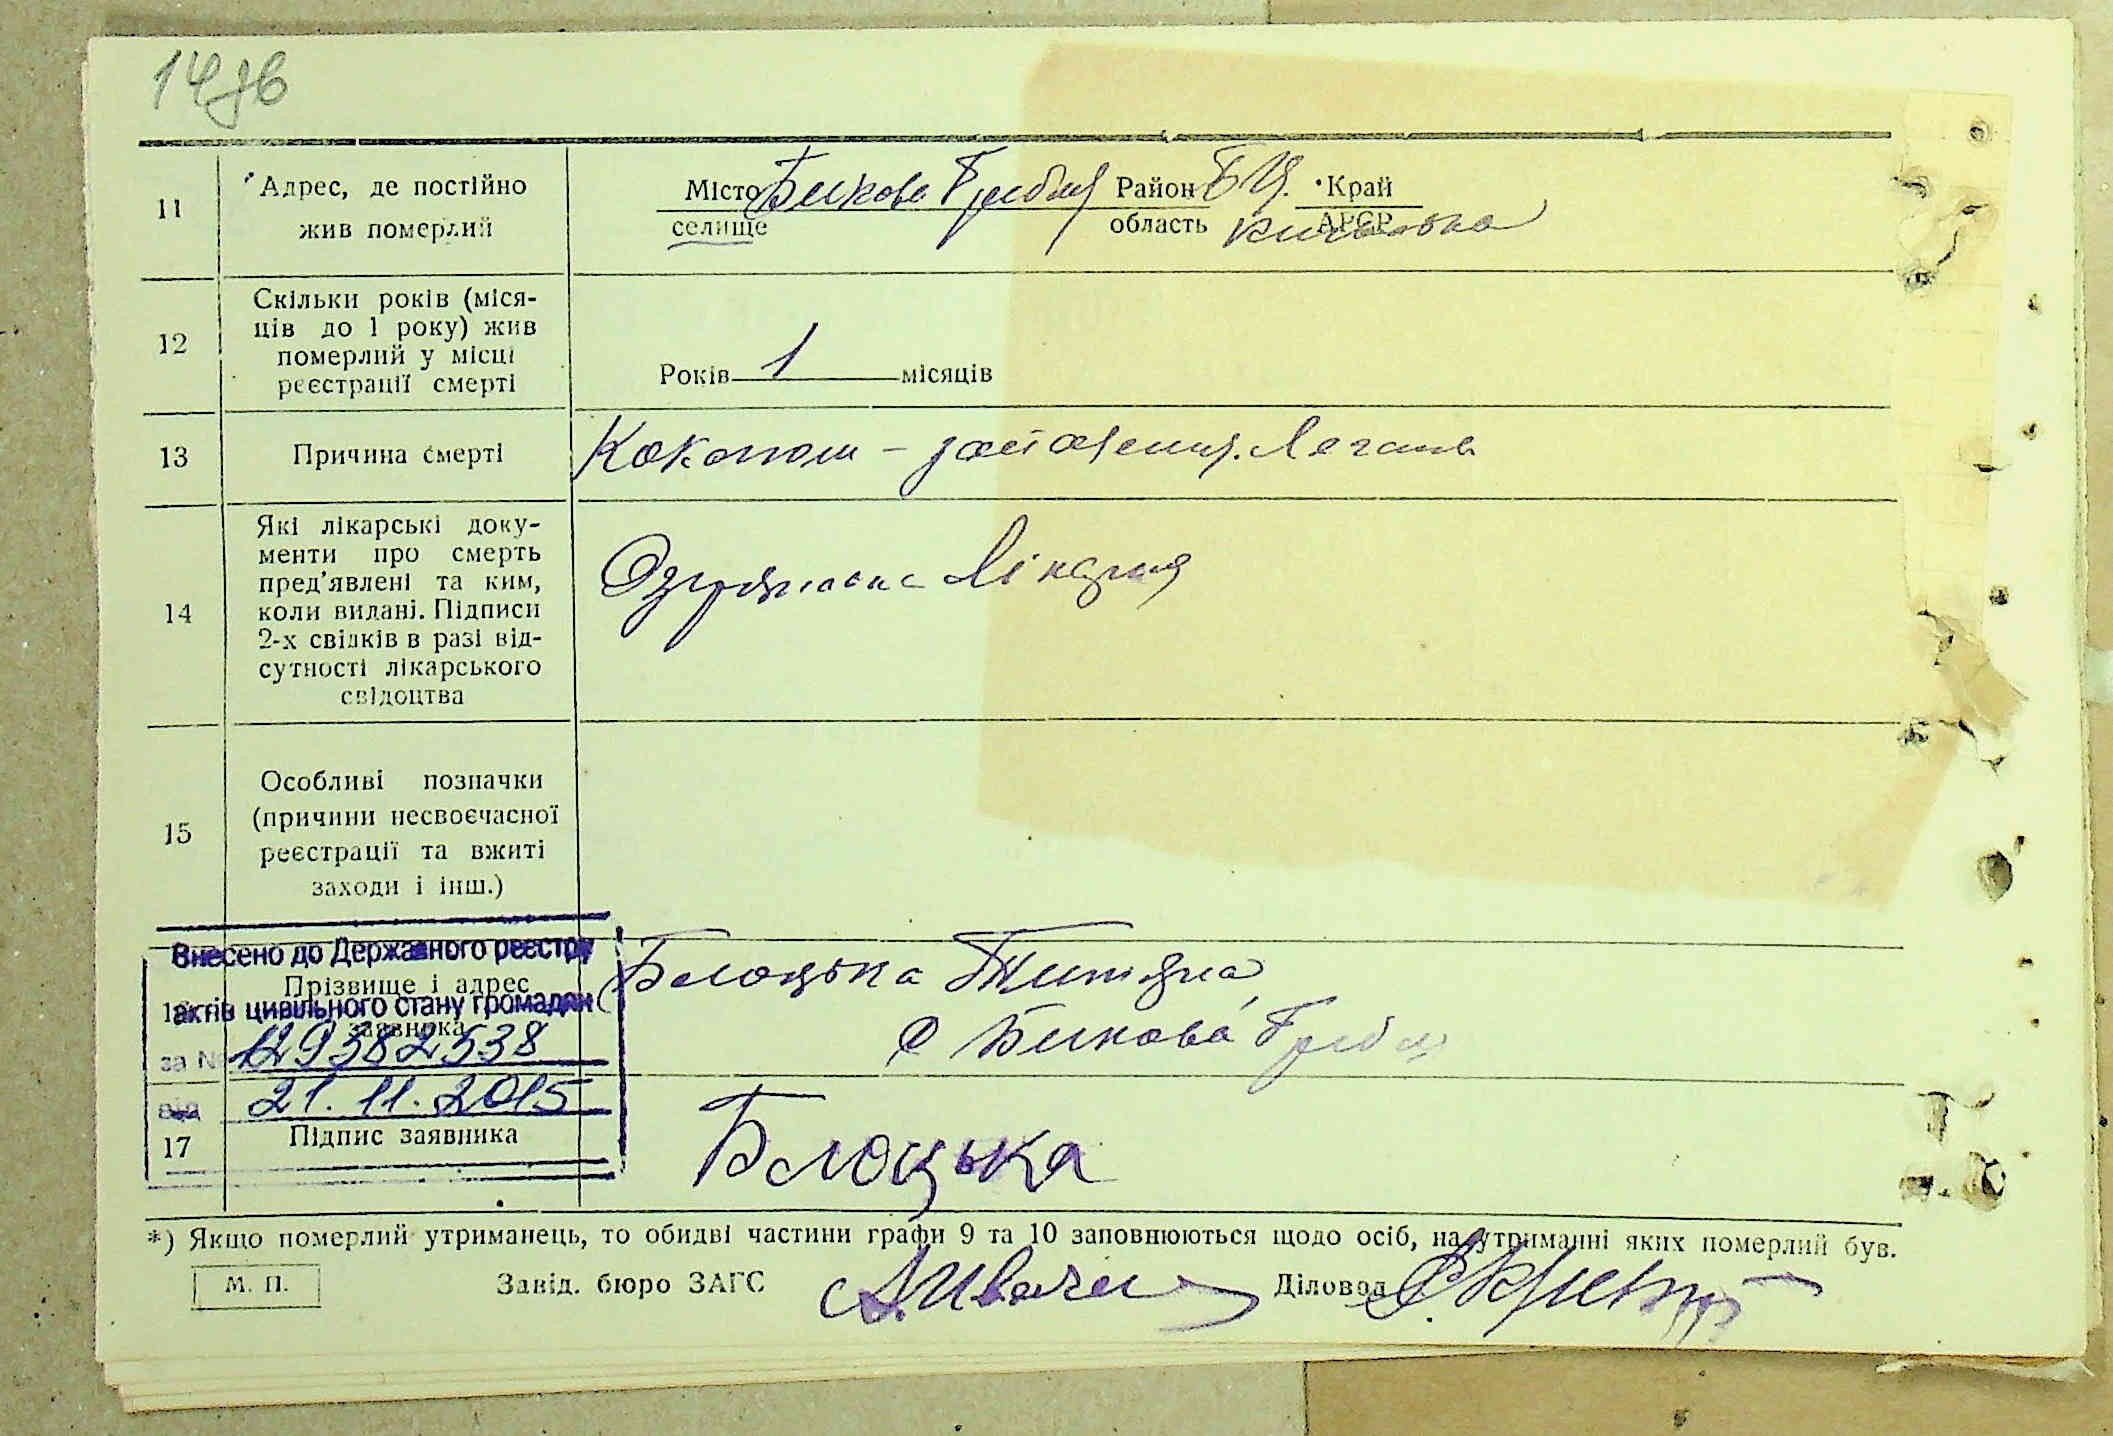 14зв
11 Адрес, де постійно жив померлий
Місто Бикова Гребля Район БЦ. Край
селище область Київська АРСР
12 Скільки років (міся-
ців до 1 року) жив
померлий у місці
реєстрації смерті
Років 1 місяців
13 Причина смерті
Коклюш – запалення. Легень
14 Які лікарські доку-
менти про смерть
пред'явлені та ким,
коли видані. Підписи
2-х свідків в разі від-
сутності лікарського
свідоцтва
Лікарня
15 Особливі позначки
(причини несвоєчасної
реєстрації та вжиті
заходи і інш.)
Внесено до Державного реєстру
актів цивільного стану громадян
за № 12938 2538
від 21.11.2015
Прізвище і адрес
заявника
Блоцька Титяна
с Бикова Гребля
17 Підпис заявника
Блоцька
*) Якщо померлий утриманець, то обидві частини графи 9 та 10 заповнюються щодо осіб, на утриманні яких померлий був.
М. П. Завід. бюро ЗАГС Діловод